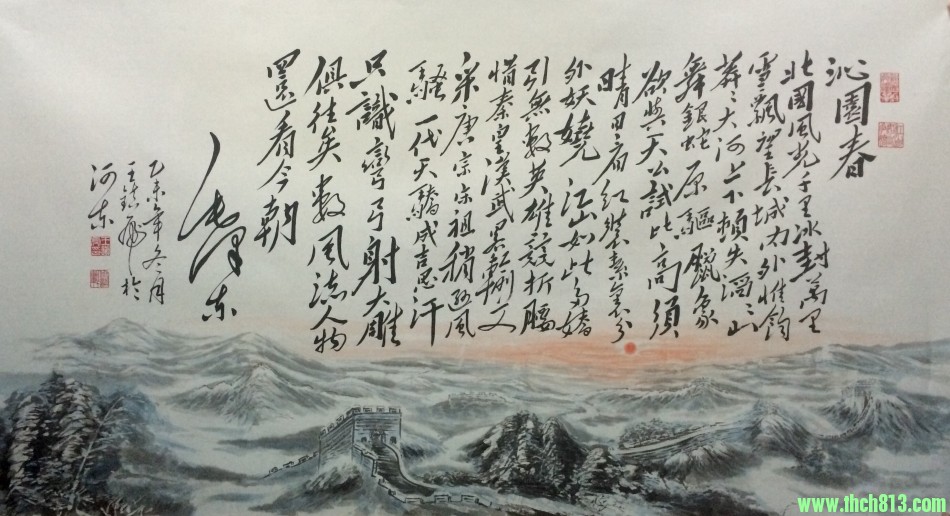 沁園春
北國風光千里冰封萬里
雪飄望長城內外惟餘
莽〻大河上下頓失滔〻山
舞銀蛇原驅臘象
欲與天公試比高須
晴日看紅裝素裹分
外妖嬈江山如此多嬌
引無數英雄競折腰
惜秦皇漢武略輸文
采唐宗宋祖稍遜風
騷一代天驕成吉思汗
只識彎弓射大雕
俱往矣數風流人物
還看今朝
毛澤東
乙未年冬月
王鎮飛於
河東
www.lhch813.com